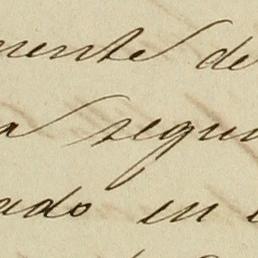 mente de
a segun
ado en